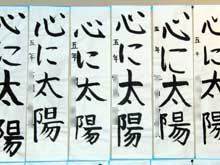 心に太陽
五年
心に太陽
五年
心に太陽
五年
心に太陽
五年
心に太陽
心に太陽